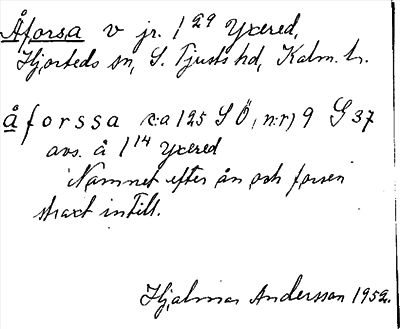 Åforsa v jr. 1 29 Yxered,
Hjorteds sn, S. Tjusts hd, Kalm. l.
åforssa k:a 125 SÖ, n:r 9 G 37
avs. å 1 14 Yxered
Namnet efter ån och forsen
straxt intill.
Hjalmar Andersson 1952.